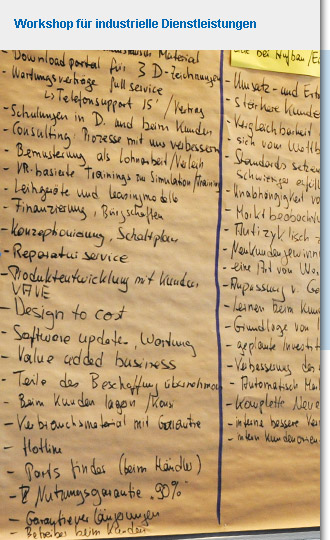 Workshop für industrielle Dienstleistungen
Material
- Downloadportal für 3D-zeichnungen
- Wartungsverträge full service
↳ Telefonsupport 15' / Vertrag
- Schulungen in D. und beim Kunden
- Consulting, Prozesse mit uns verbessern
- Bemusterung als Lohnarbeit/Verleih
- VR-basierte Trainings zur Simulation/Training
- Leihgeräte und Leasingmodelle
- Finanzierung, Bürgschaften
- Konzeptionierung, Schaltplan
- Reparaturservice
- Produktentwicklung mit Kunden
VAVE
- Design to cost
- Software update, Wartung
- Value added business
- Teile der Beschaffung übernehmen
- Beim Kunden lagern / Konsi
- Verbrauchsmaterial mit Garantie
- Hotline
- Parts finder (beim Händler)
- Nutzungsgarantie "90%"
- Garantieverlängerungen
- Betreiber beim Kunden
bei Aufbau
- Umsatz- und
- stärkere Kunden
- Vergleichbarkeit
- sich vom Wettb
- Standards setzen
schwieriger
- Unabhängigkeit v
- Markt beobacht
- Antizyklisch
- Neukundengewinn
- eine Art von
- Anpassung v. Ge
- Lernen beim Kun
- Grundlage von
- geplante Investit
- Verbesserung des
- Automatisch
- komplette Neue
- interne bessere
- intern Kundenorien